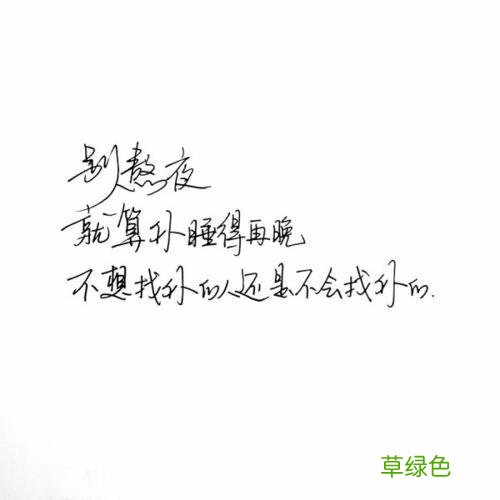 别熬夜
就算你睡得再晚
不想找你的人还是不会找你的.
草绿色